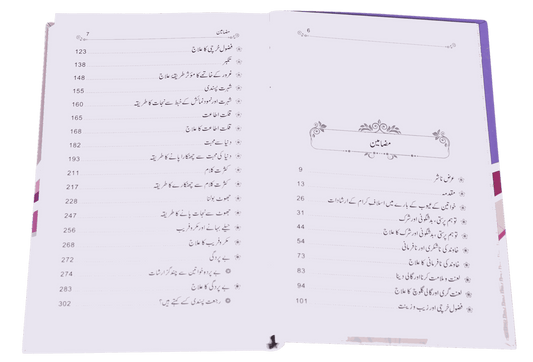 6
مضامین
عرضِ ناشر 9
مقدمہ 13
خواتین کے عیوب کے بارے میں اسلاف کرام کے ارشادات 26
توہم پرستی، بدشگونی اور شرک 31
توہم پرستی، بدشگونی اور شرک کا علاج 44
خاوند کی ناشکری اور نافرمانی 54
خاوند کی نافرمانی کا علاج 73
لعنت و ملامت کرنا اور گالی دینا 83
لعنت گری اور گالی گلوچ کا علاج 94
فضول خرچی اور زیب و زینت 101
مضامین 7
فضول خرچی کا علاج 123
تکبر 138
غرور کے خاتمے کا مؤثر طریقۂ علاج 148
شہرت پسندی 155
شہرت اور نمود و نمائش کے خبط سے نجات کا طریقہ 160
قلت اطاعت 165
قلت اطاعت کا علاج 168
دنیا سے محبت 182
دنیا کی محبت سے چھٹکارا پانے کا طریقہ 193
کثرت کلام 211
کثرت کلام سے چھٹکارے کا طریقہ 217
جھوٹ بولنا 228
جھوٹ سے نجات پانے کا طریقہ 247
حیلے بہانے اور مکر و فریب 256
مکر و فریب کا علاج 268
بے پردگی 272
بے پردہ خواتین سے چند گزارشات 274
بے پردگی کا علاج 283
رجعت پسندی کسے کہتے ہیں؟ 302